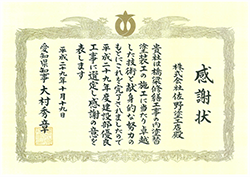 感謝状
株式会社佐野塗工店殿
貴社は橋梁修繕工事の内塗替
塗装工の施工に当たり卓越
した技術と献身的な努力の
もとにこれを完了されましたので
平成二十九年度建設部優良
工事に選定し感謝の意を
表します
平成二十九年十月十九日
愛知県知事 大村秀章